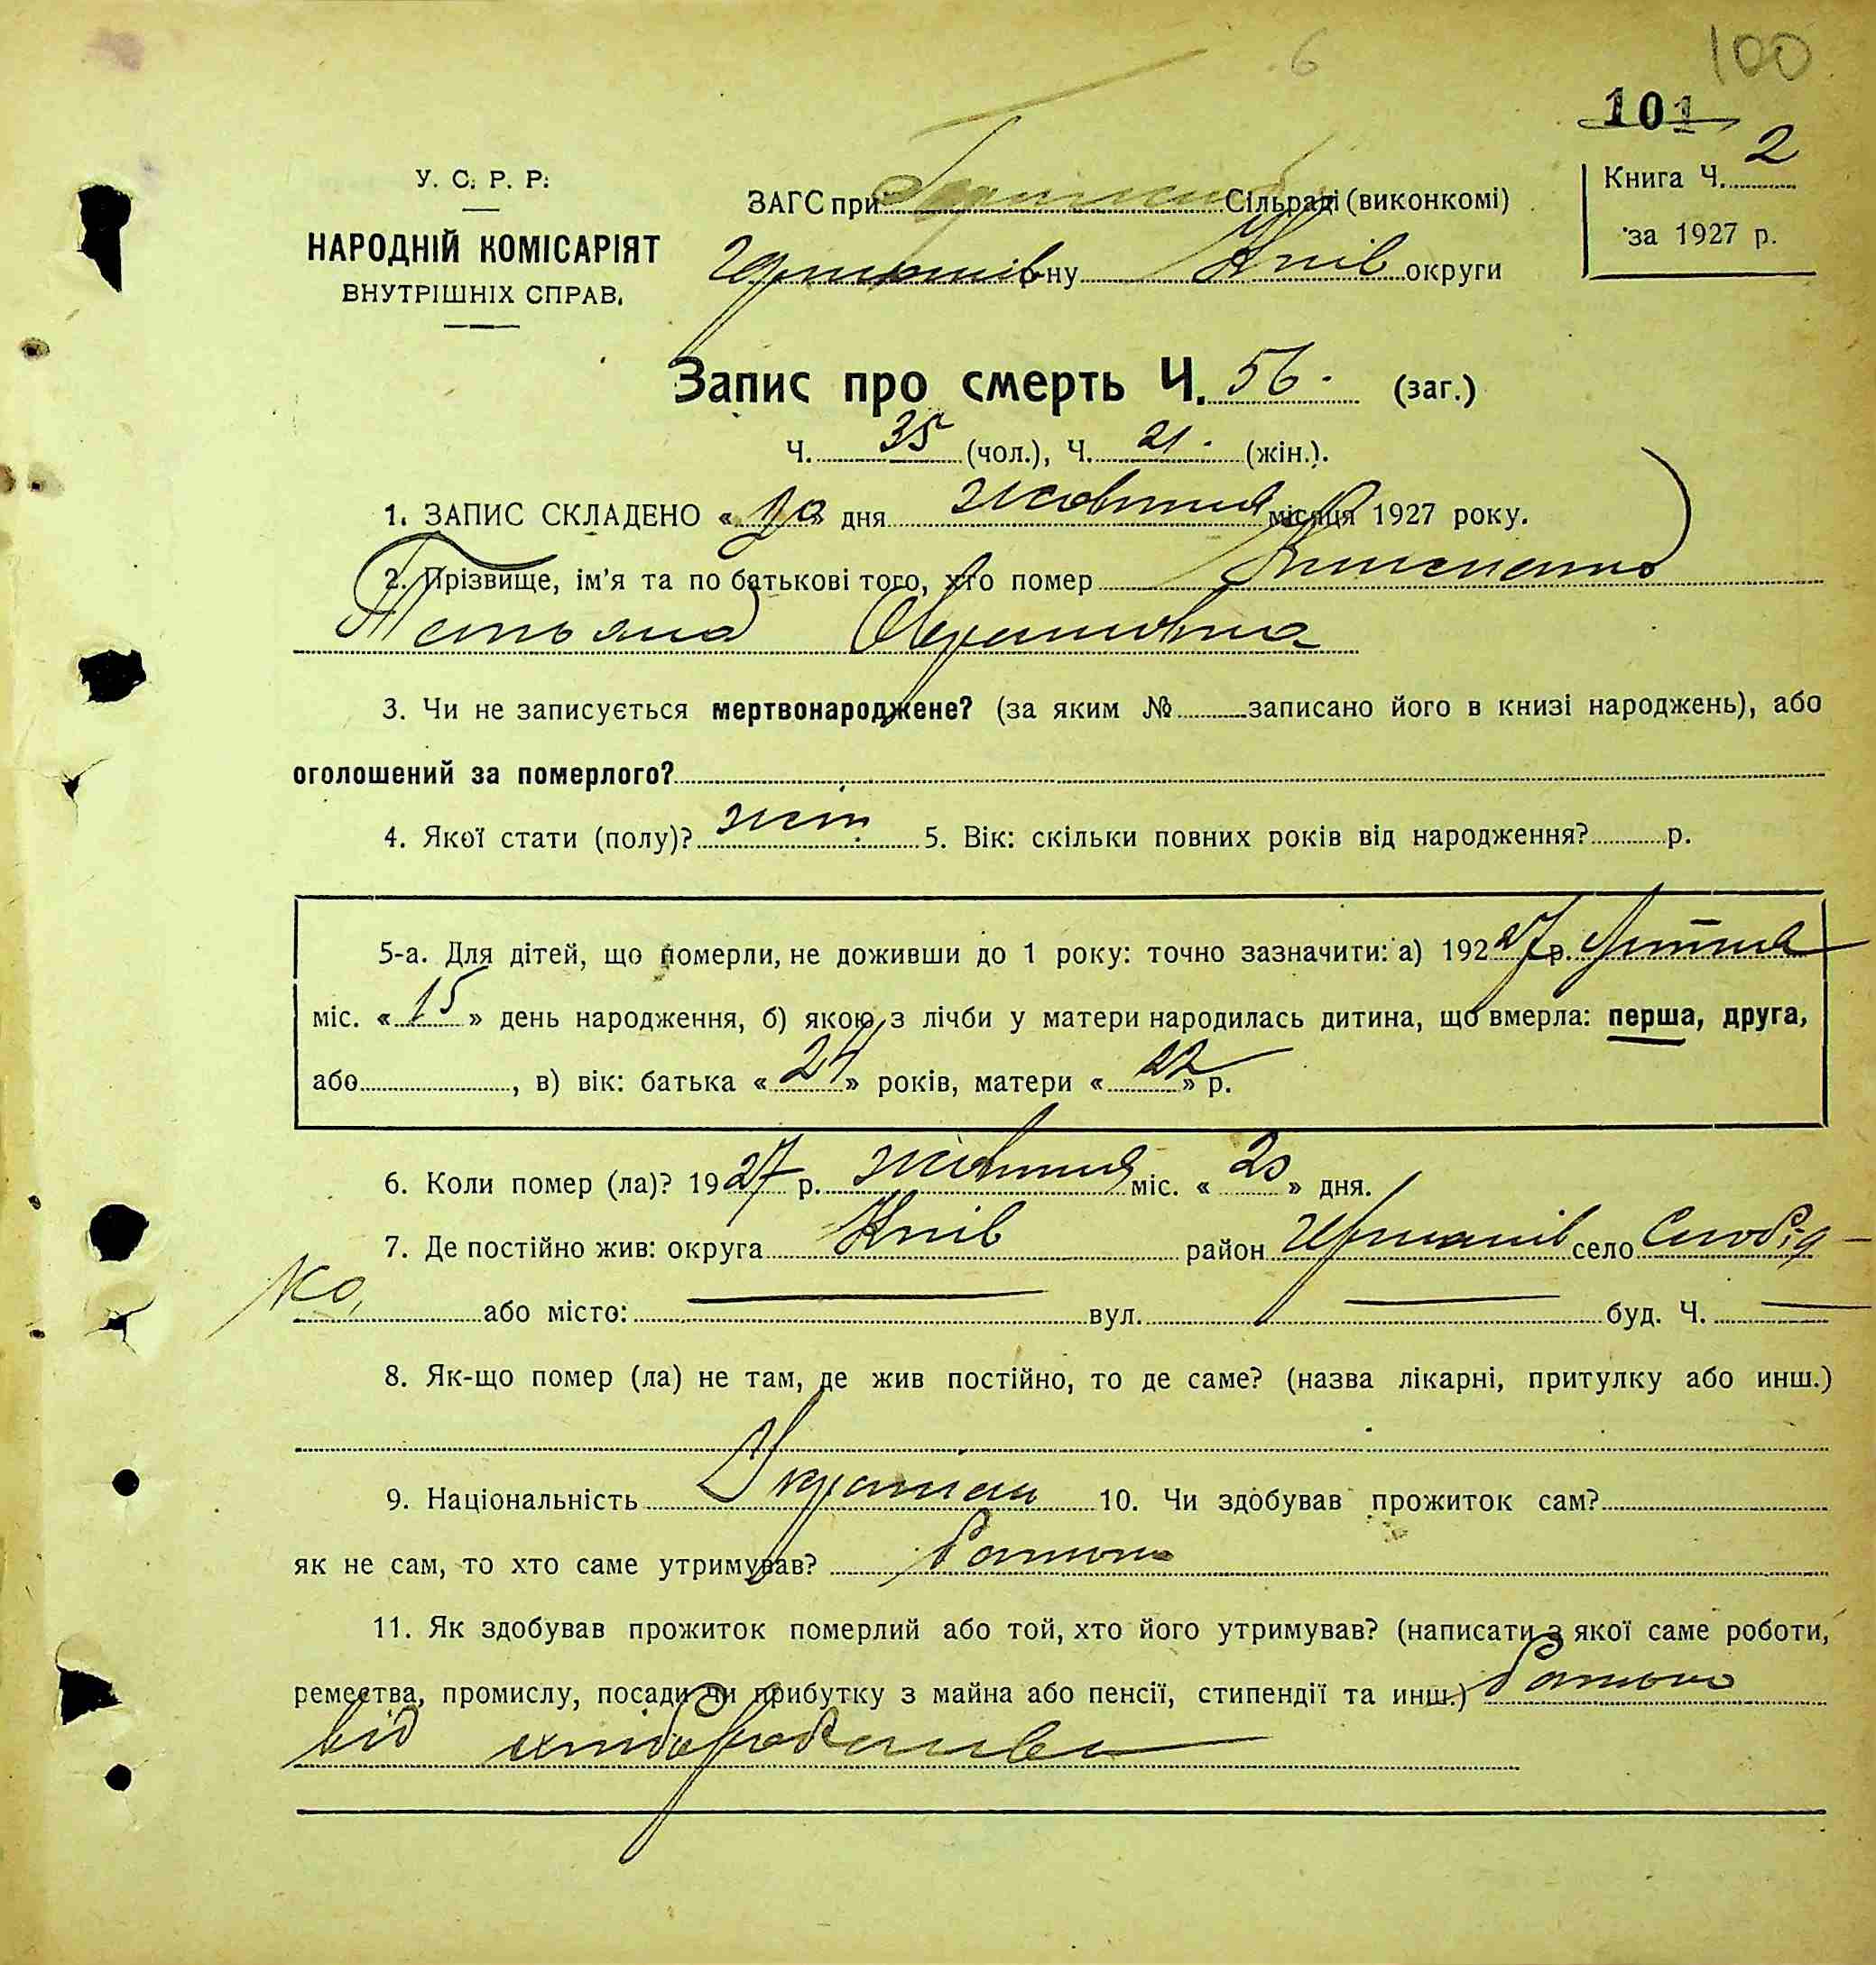 6 100
101
У. С. Р. Р.
НАРОДНІЙ КОМІСАРІЯТ
ВНУТРІШНІХ СПРАВ.
ЗАГС при Сільраді (виконкомі)
р-ну Київ округи
Книга Ч. 2
за 1927 р.
Запис про смерть Ч. 56. (заг.)
Ч. 35 (чол.), Ч. 21. (жін.).
1. ЗАПИС СКЛАДЕНО « » дня жовтня місяця 1927 року.
2. Прізвище, ім'я та по батькові того, хто помер
Тетьяна
3. Чи не записується мертвонароджене? (за яким № записано його в книзі народжень), або
оголошений за померлого?
4. Якої стати (полу)? жін. 5. Вік: скільки повних років від народження? р.
5-а. Для дітей, що померли, не доживши до 1 року: точно зазначити: а) 192 27 р.
міс. « 15 » день народження, б) якою з лічби у матери народилась дитина, що вмерла: перша, друга,
або , в) вік: батька « 24 » років, матери « 22 » р.
6. Коли помер (ла)? 19 27 р. жовтня міс. « 20 » дня.
7. Де постійно жив: округа Київ район Германів село Слобід-
ка, або місто: — вул. — буд. Ч. —
8. Як-що помер (ла) не там, де жив постійно, то де саме? (назва лікарні, притулку або инш.)
9. Національність 10. Чи здобував прожиток сам?
як не сам, то хто саме утримував? батько
11. Як здобував прожиток померлий або той, хто його утримував? (написати з якої саме роботи,
ремества, промислу, посади чи прибутку з майна або пенсії, стипендії та инш.) батько
від хліборобства